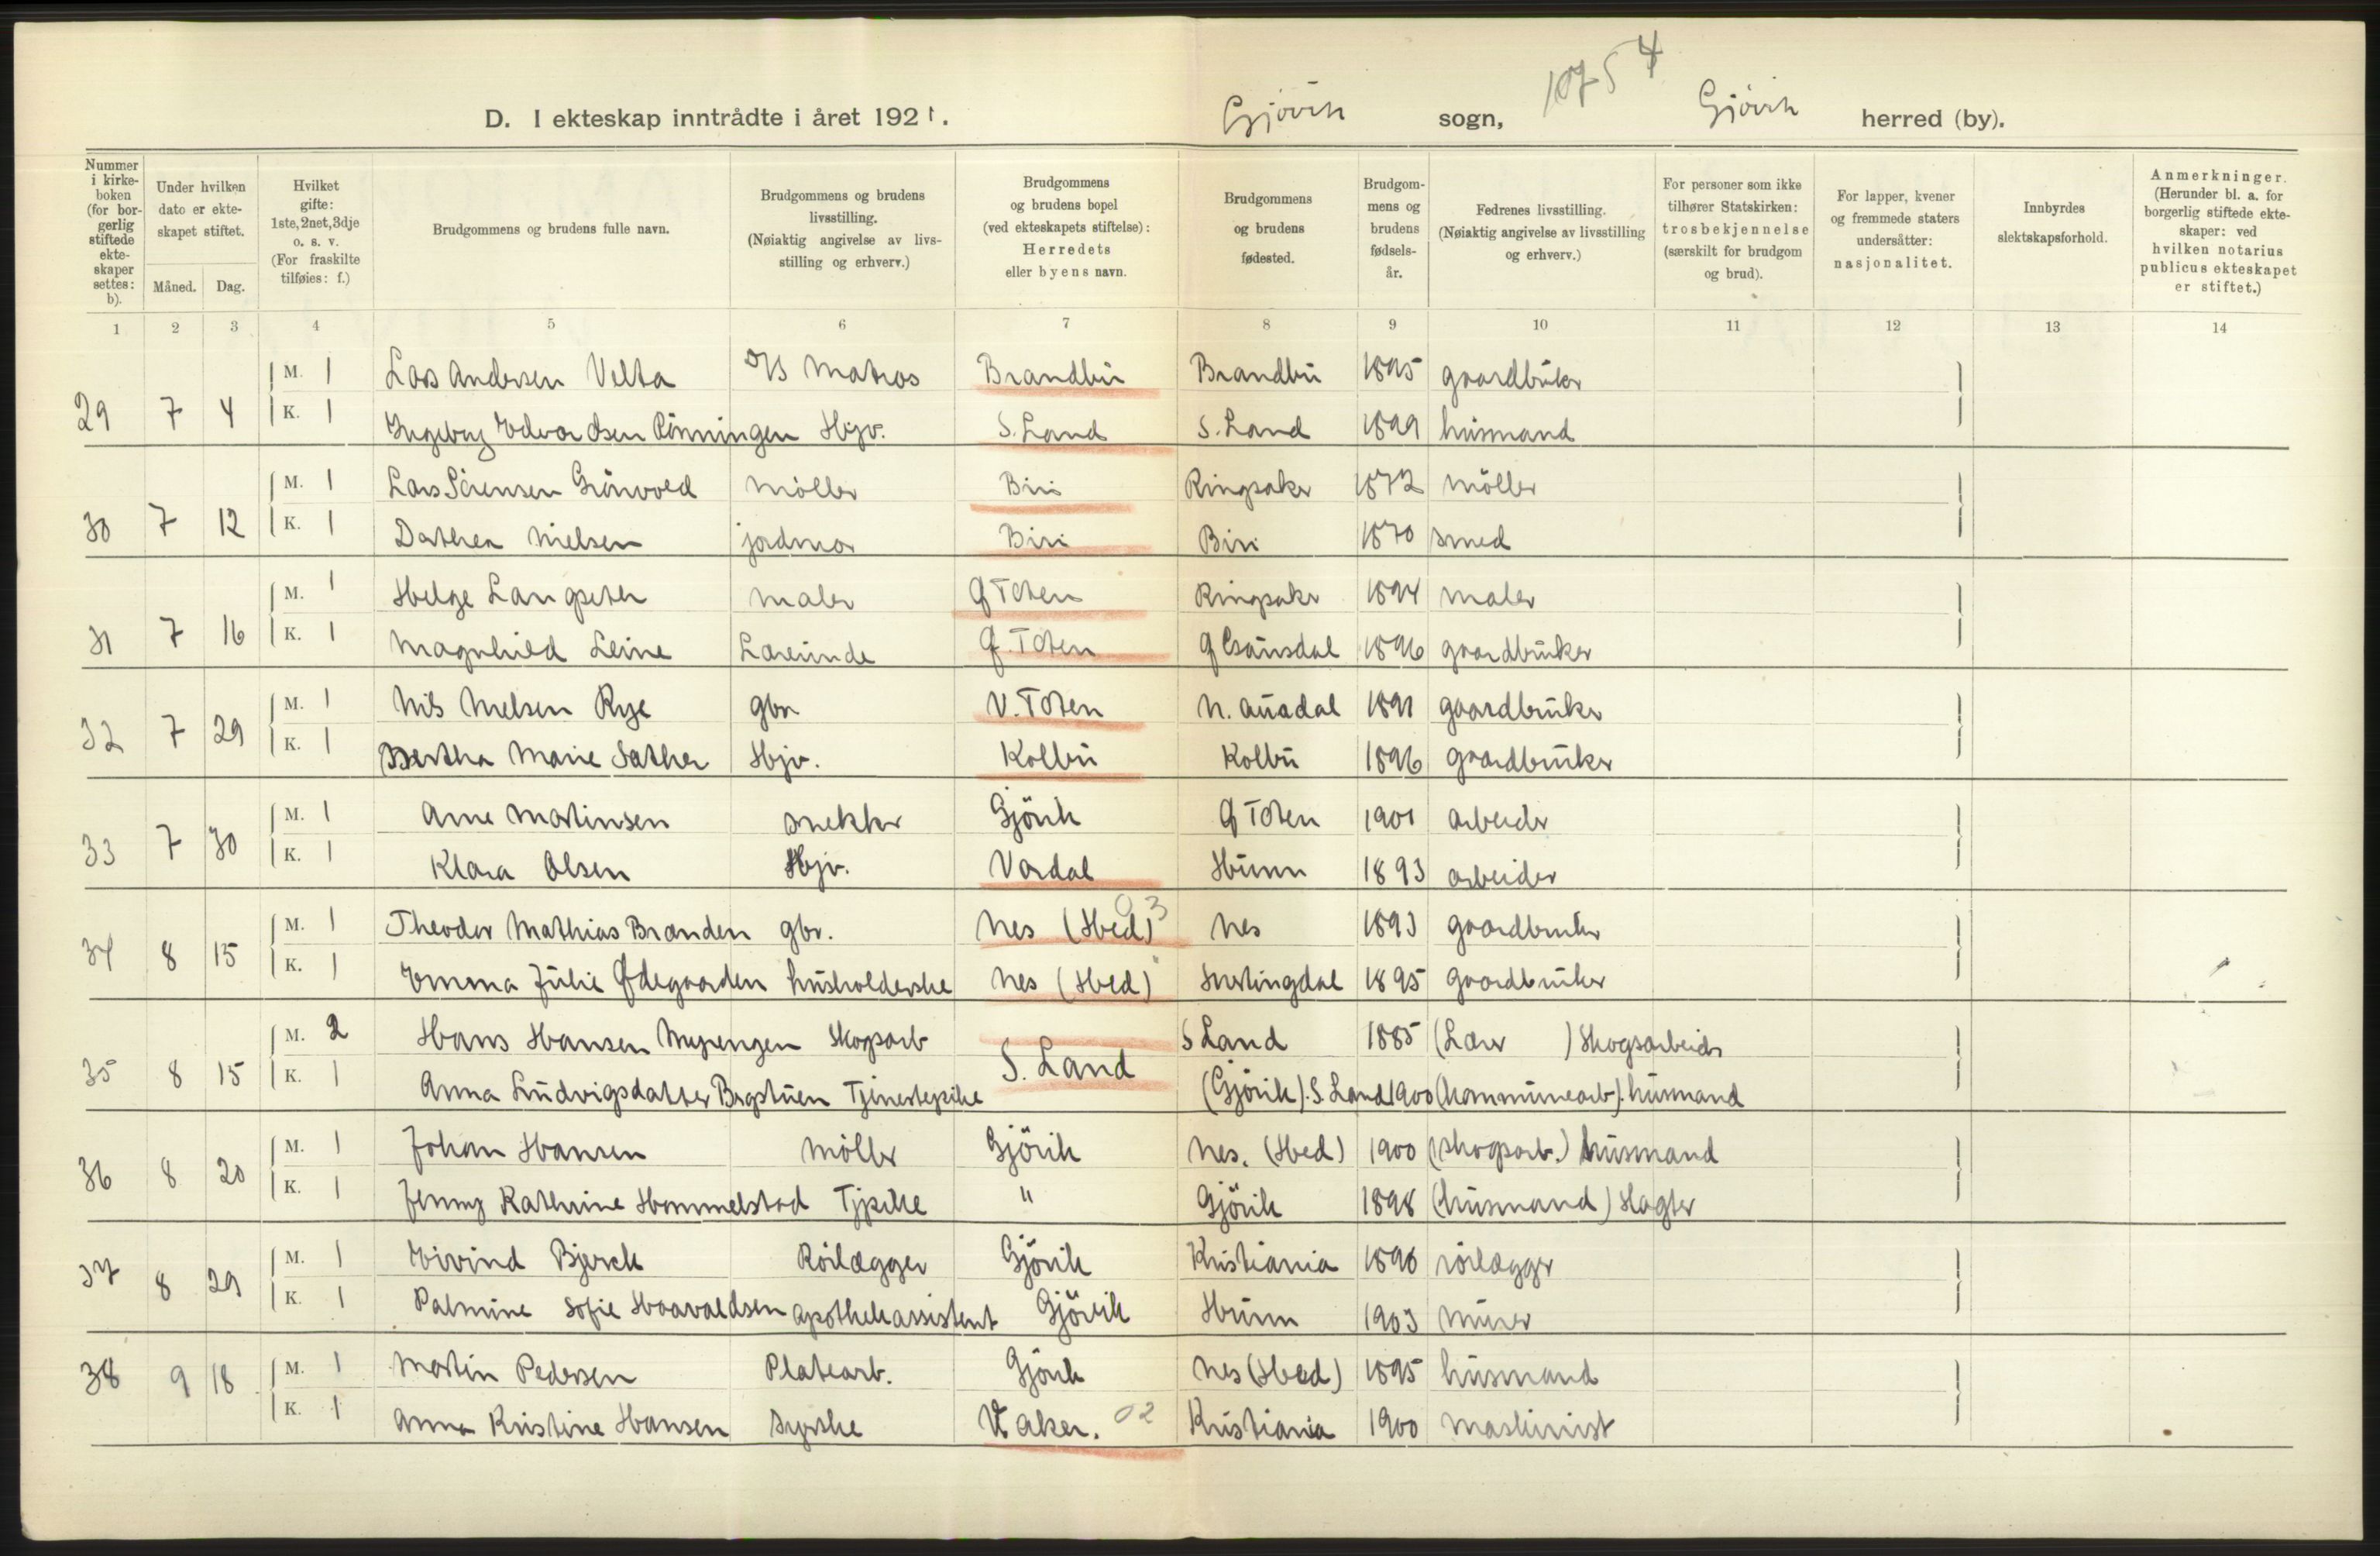 D. I ekteskap inntrådte i året 1921. Gjøvik sogn, 1075 4 Gjøvik herred (by).
Nummer i kirke-boken (for bor-gerlig stiftede ekte-skaper settes: b).
Under hvilken dato er ekte-skapet stiftet.
Måned. Dag.
Hvilket gifte: 1ste, 2net, 3dje o. s. v. (For fraskilte tilføies: f.)
Brudgommens og brudens fulle navn.
Brudgommens og brudens livsstilling. (Nøiaktig angivelse av livs-stilling og erhverv.)
Brudgommens og brudens bopel (ved ekteskapets stiftelse): Herredets eller byens navn.
Brudgommens og brudens fødested.
Brudgom-mens og brudens fødsels-år.
Fedrenes livsstilling. (Nøiaktig angivelse av livsstilling og erhverv.)
For personer som ikke tilhører Statskirken: trosbekjennelse (særskilt for brudgom og brud).
For lapper, kvener og fremmede staters undersåtter: nasjonalitet.
Innbyrdes slektskapsforhold.
Anmerkninger. (Herunder bl. a. for borgerlig stiftede ekte-skaper: ved hvilken notarius publicus ekteskapet er stiftet.)
1 2 3 4 5 6 7 8 9 10 11 12 13 14
M. 1 Lars Andersen Velta D/S Matros Brandbu Brandbu 1895 gaardbruker
29 7 4 K. 1 Ingeborg Edvardsen Rönningen Hjv. S. Land S. Land 1899 husmand
M. 1 Lars Sörensen Grönvold Möller Biri Ringsaker 1872 möller
30 7 12 K. 1 Dorthea Nielsen jordmor Biri Biri 1870 smed
M. 1 Helge Langseter maler Ø Toten Ringsaker 1894 maler
31 7 16 K. 1 Magnhild Leine Lærerinde Ø. Toten Ø Gausdal 1896 gaardbruker
M. 1 Nils Nielsen Rye gbr V. Toten N. Aurdal 1891 gaardbruker
32 7 29 K. 1 Bertha Marie Sæther Hjv. Kolbu Kolbu 1896 gaardbruker
M. 1 Arne Martinsen snekker Gjövik Ø Toten 1901 arbeider
33 7 30 K. 1 Klara Olsen Hjv. Vardal Hunn 1893 arbeider
M. 1 Theodor Mathias Branden gbr. Nes (Hed) 03 Nes 1893 gaardbruker
34 8 15 K. 1 Emma Julie Ødegaarden husholderske Nes (Hed) Snertingdal 1895 gaardbruker
M. 2 Hans Hansen Myrengen Skogsarb S. Land S Land 1885 (Lærer) Skogsarbeider
35 8 15 K. 1 Anna Ludvigsdatter Bergstuen Tjenestepike (Gjövik). S. Land 1900 (kommunearb). husmand
M. 1 Johan Hansen Möller Gjövik Nes. (Hed) 1900 (skogsarb.) husmand
36 8 20 K. 1 Jenny Kathrine Hammelstad Tjpike " Gjövik 1898 (husmand) Slagter
M. 1 Eivind Bjerck Rörlægger Gjövik Kristiania 1896 rörlægger
37 8 29 K. 1 Palmine Sofie Haavaldsen apothekassistent Gjövik Hunn 1903 murer
38 9 18 M. 1 Martin Pedersen Platearb. Gjövik Nes (Hed) 1895 husmand
K. 1 Anna Kristine Hansen syerske V. Aker. 02 Kristiania 1900 maskinist